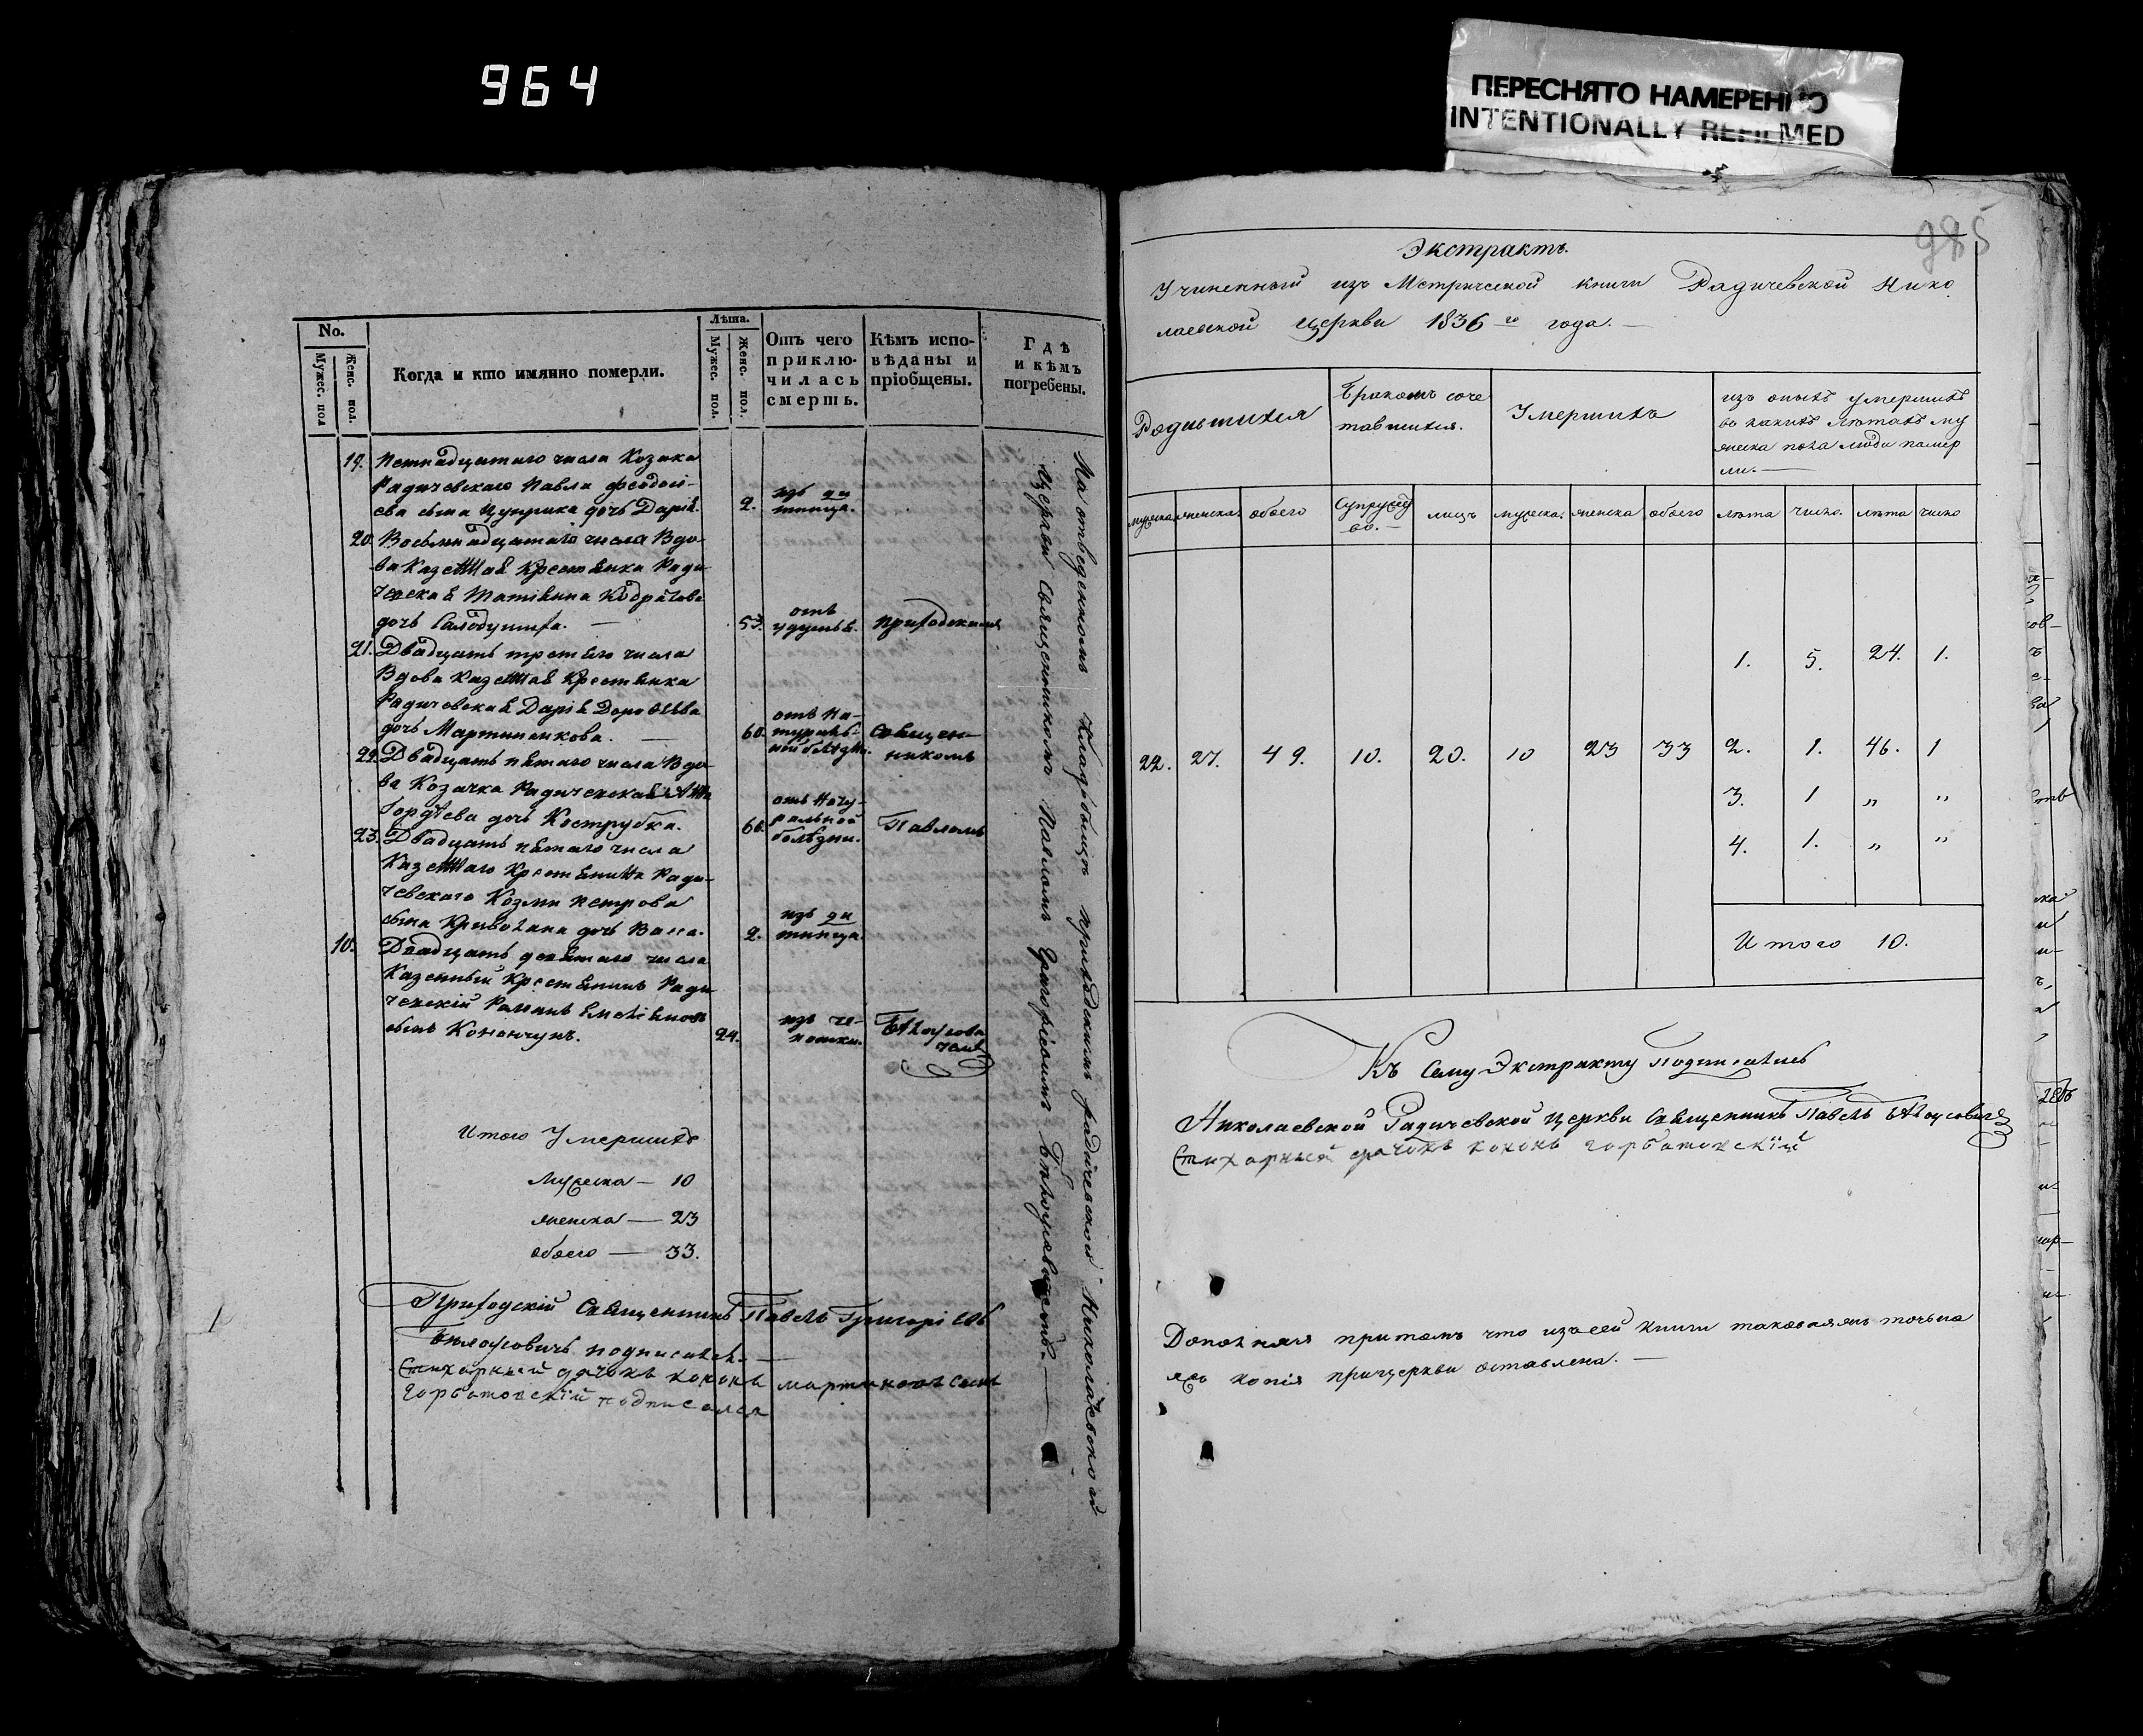 964
ПЕРЕСНЯТО НАМЕРЕННО
INTENTIONALLY REFILMED
No.
Мужес. пол
Женс. пол.
Когда и кто имянно померли.
Лѣта.
Мужес. пол.
Женс. пол.
Отъ чего
приклю-
чилась
смерть.
Кѣмъ испо-
вѣданы и
пріобщены.
Гдѣ
и кѣмъ
погребены.
19. Петнадцатаго числа Козака
Радичевскаго Павла Феодосі-
ева сына Цуприка дочь Дарія. 2. изъ ди
тинца.
20. Восемнадцатаго числа Вдо-
ва Казенная Крестянка Ради-
ческая Татіянна Кодратова
дочь Салодушиха. — 53. отъ
удушья. Приходскимъ
21. Двадцать третяго числа
Вдова Казенная Крестянка
Радичовская Дарія Дорофѣева
дочь Мартиненкова. — 60. отъ На-
туральной болѣзни. Священ-
никомъ
22. Двадцать пятаго числа Вдо-
ва Козачка Радичевская Анна
Гордѣева дочь Кострубка. 66. отъ Нату-
ральной
болѣзни. Павломъ
23. Двадцать пятаго числа
Казеннаго Крестянина Ради-
чевскаго Козми Петрова
сына Кривохана дочь Васса. 2. изъ ди
тинца.
10. Двадцать девятаго числа
Казенный Крестянинъ Ради
чевскій Романъ Емеліяновъ
сынъ Конончукъ. 24. изъ че-
потки. Бѣлоусови
чемъ
На отведенномъ Кладбищѣ приходскимъ Радичевской Николаевской
Церкви Священникомъ Павломъ Григоріевымъ Бѣлоусовичемъ. —
Итого Умершихъ
Мужеска — 10
женска — 23
обоего — 33.
Приходскій Священникъ Павелъ Григоріевъ
Бѣлоусовичъ подписался. —
Стихарный дячокъ кононъ мартиновъ сынъ
Горбатовскій подписался
985
Экстрактъ.
Учиненный изъ Метрической книги Радичевской Нико
лаевской Церкви 1836 го года. —
Родившихся
Бракомъ соче
тавшихся.
Умершихъ
изъ оныхъ умершихъ
въ какихъ лѣтахъ му
жеска пола люди помер
ли. —
мужеска женска обоего Супружес
во. — лицъ мужеска. женска обоего лѣта число. лѣта число
1. 5. 24. 1.
22. 27. 49. 10. 20. 10 23 33 2. 1. 46. 1
3. 1 „ „
4. 1. „ „
Итого 10.
Къ Сему Экстракту Подписались
Николаевской Радичевской Церкви Священникъ Павелъ Бѣлоусовичъ
Стихарный дячокъ кононъ горбатовскій
Дополняя притомъ что изъ сей книги таковаяжъ точьна
я копія прицеркви оставлена. —